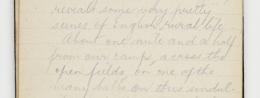 reveals some very pretty
scenes of English rural life.
About one mile and a half
from our camp, across the
open fields, on one of the
many hills on this undul-